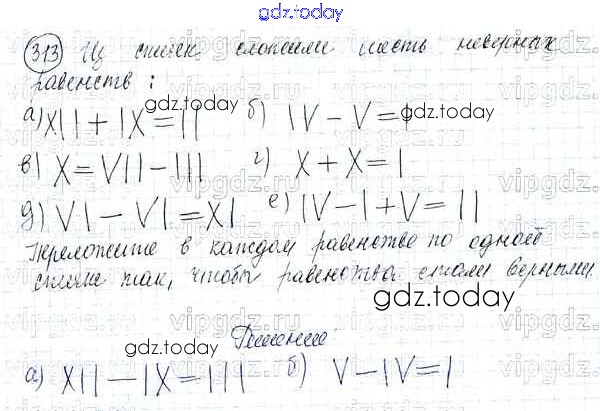 gdz.today
313 Из спичек сложили шесть неверных
равенств :
а) XII + IX = II б) IV - V = I
gdz.today
в) X = VII - III г) X + X = I
д) VI - VI = XI е) IV - I + V = II
Переложите в каждом равенстве по одной
спичке так, чтобы равенства стали верными.
gdz.today
Решение
gdz.today
а) XII - IX = III б) V - IV = I